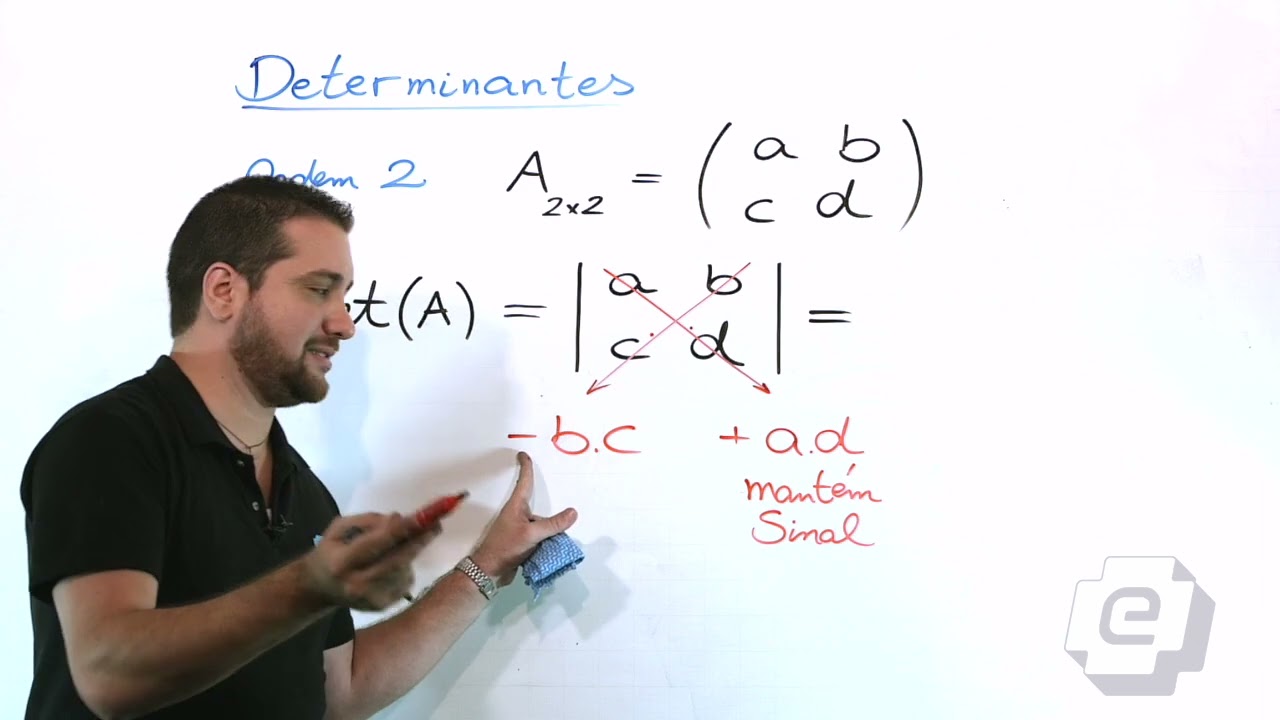 Determinantes
Ordem 2
A 2x2 = ( a b
c d )
t(A) = | a b
c d | =
- b.c + a.d
mantém
Sinal
e